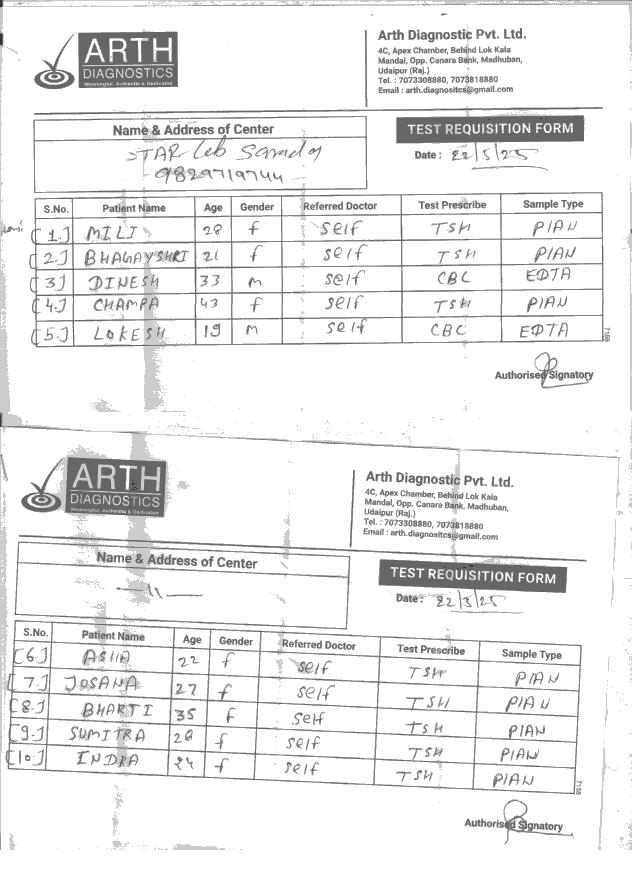 ARTH
DIAGNOSTICS
Meaningful, Authentic & Dedicated
Arth Diagnostic Pvt. Ltd.
4C, Apex Chamber, Behind Lok Kala
Mandal, Opp. Canara Bank, Madhuban,
Udaipur (Raj.)
Tel. : 7073308880, 7073818880
Email : arth.diagnositcs@gmail.com
Name & Address of Center
STAR Leb
9829719744
TEST REQUISITION FORM
Date : 22/5/25
S.No. Patient Name Age Gender Referred Doctor Test Prescribe Sample Type
[1.] MILI 28 f self TSH PIAN
[2.] BHAGAYSHRI 21 f self TSH PIAN
[3.] DINESH 33 m self CBC EDTA
[4.] CHAMPA 43 f self TSH PIAN
[5.] LOKESH 19 m self CBC EDTA
7158
Authorised Signatory
ARTH
DIAGNOSTICS
Meaningful, Authentic & Dedicated
Arth Diagnostic Pvt. Ltd.
4C, Apex Chamber, Behind Lok Kala
Mandal, Opp. Canara Bank, Madhuban,
Udaipur (Raj.)
Tel. : 7073308880, 7073818880
Email : arth.diagnositcs@gmail.com
Name & Address of Center
—11—
TEST REQUISITION FORM
Date : 22/5/25
S.No. Patient Name Age Gender Referred Doctor Test Prescribe Sample Type
[6.] ASHA 22 f self TSH PIAN
[7.] JOSANA 27 f self TSH PIAN
[8.] BHARTI 35 f self TSH PIAN
[9.] SUMITRA 28 f self TSH PIAN
[10.] INDRA 24 f self TSH PIAN
7158
Authorised Signatory